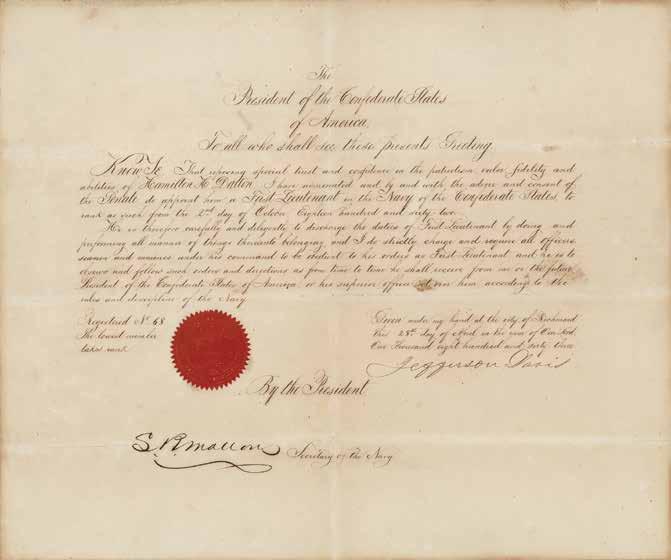 The
President of the Confederate States
of America,
To all who shall see these presents Greeting,
Know Ye That reposing special trust and confidence in the patriotism, valor fidelity and
abilities of Hamilton H. Dalton, I have nominated and by and with the advice and consent of
the Senate do appoint him a First Lieutenant in the Navy of the Confederate States, to
rank as such from the 2nd day of Eighteen hundred and sixty two.
He is therefore carefully and diligently to discharge the duties of First Lieutenant by doing and
performing all manner of things thereunto belonging, and I do strictly charge and require all officers
seamen and marines under his command to be obedient to his orders as First Lieutenant and he is to
observe and follow such orders and directions as from time to time he shall receive from me or the future
President of the Confederate States of America, or his superior officer set over him according to the
rules and discipline of the Navy
Registered No. 68
The lowest number
takes rank
Given under my hand at the city of Richmond
this 28th day of in the year of Our Lord,
One Thousand eight hundred and sixty three
Jefferson Davis
By the President
S. R. Mallory
Secretary of the Navy